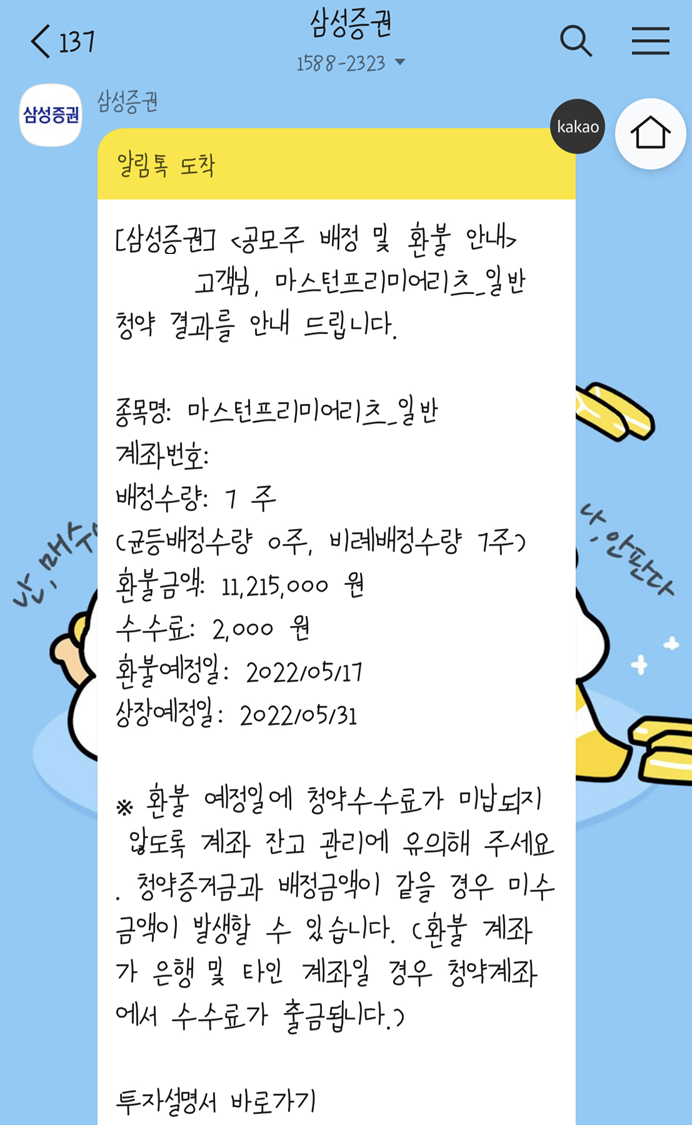 137
삼성증권
1588-2323
삼성증권
삼성증권
kakao
알림톡 도착
[삼성증권] <공모주 배정 및 환불 안내>
고객님, 마스턴프리미어리츠_일반
청약 결과를 안내 드립니다.
종목명: 마스턴프리미어리츠_일반
계좌번호:
배정수량: 7 주
(균등배정수량 0주, 비례배정수량 7주)
환불금액: 11,215,000 원
수수료: 2,000 원
환불예정일: 2022/05/17
상장예정일: 2022/05/31
난, 매수
나, 안판다
※ 환불 예정일에 청약수수료가 미납되지
않도록 계좌 잔고 관리에 유의해 주세요
. 청약증거금과 배정금액이 같을 경우 미수
금액이 발생할 수 있습니다. (환불 계좌
가 은행 및 타인 계좌일 경우 청약계좌
에서 수수료가 출금됩니다.)
투자설명서 바로가기